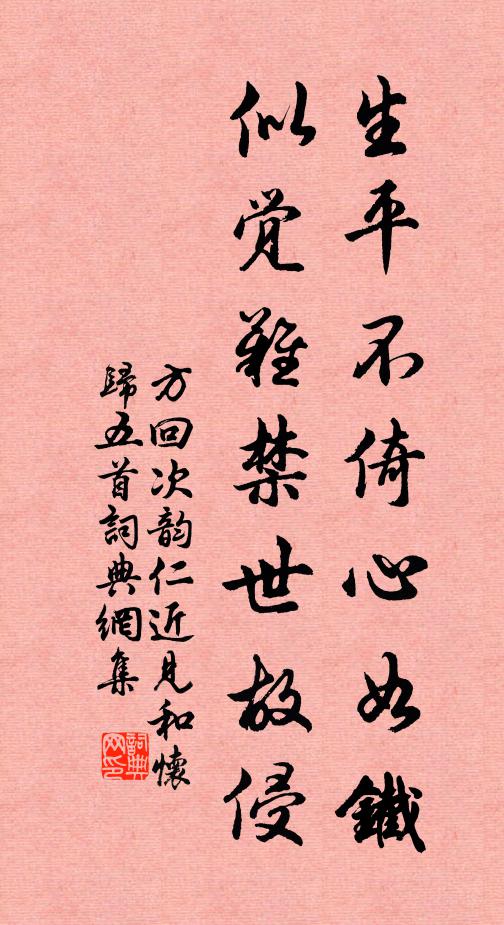 生平不倚心如鐵
似覚難禁世故侵
方回次韵仁近見和懷
歸五首詞典網集
詞典网印